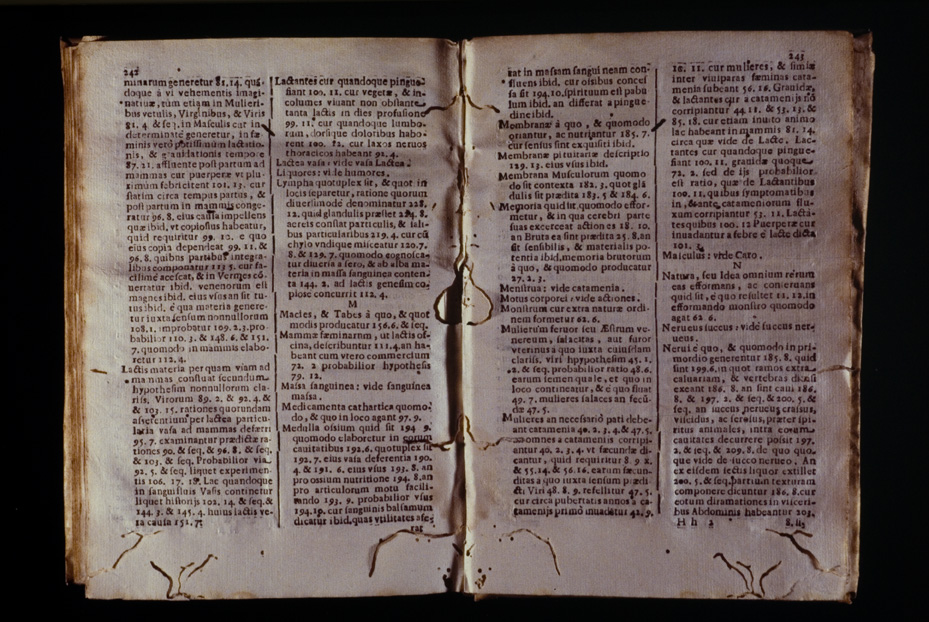 242
minarum generetur 81. 14. quo-
doque à vi vehementis imagi-
natiuæ, tùm etiam in Mulieri-
bus vetulis, Virginibus, & Viris
81. 4. & seq. in Masculis cur in-
determinatè generetur, in fæ-
minis verò potissimùm lactatio-
nis, & grauidationis tempore
87. 21. affluente post partum ad
mammas cur puerperæ vt plu-
rimùm febricitent 101. 13. cur
statim circa tempus partus, &
post partum in mammis conge-
ratur 96. 8. eius causa impellens
quæ ibid. vt copiosius habeatur,
quid requiritur 99. 10. e quo
eius copia dependeat 99. 11. &
96. 8. quibus partibus integra-
libus componatur 113. 5. cur fa-
cillimè acescat, & in Vermes cō-
uertatur ibid. venenorum est
magnes ibid. eius vsus an sit tu-
tus ibid. è qua materia genere-
tur iuxta sensum nonnullorum
108. 1. improbatur 109. 2. 3. pro-
babilior 110. 3. & 148. 6. & 151.
7. quomodo in mammis elabo-
retur 112. 4.
Lactis materia per quam viam ad
mammas confluat secundum
hypothesim nonnullorum cla-
riss. Virorum 89. 2. & 92. 4. &
& 103. 15. rationes quorundam
asserentium per lactea particu-
laria vasa ad mammas deferri
95. 7. examinantur prædictæ ra-
tiones 90. & seq. & 96. 8. & seq.
& 103. & seq. Probabilior via
92. 5. & seq. liquet experimen-
tis 106. 17. 18. Lac quandoque
in sanguifluis Vasis contineri
liquet historijs 102. 14. & seq. &
144. 3. & 145. 4. huius lactis ve-
ra causa 151. 7.
Lactantes cur quandoque pingue-
fiant 100. 11. cur vegetæ, & in-
columes viuant non obstante
tanta lactis in dies profusione
99. 11. cur quandoque lumbo-
rum, dorsique doloribus habo-
rent 100. 12. cur laxos neruos
thoracicos habeant 92. 4.
Lactea vasa: vide vasa Lactea.
Liquores: vide humores.
Lympha quotuplex sit, & quot in
locis separetur, ratione quorum
diuersimodè denominatur 228.
12. quid glandulis præstet 224. 8.
aereis constat particulis, & sali-
bus particularibus 219. 4. cur cū
chylo vndique misceatur 120. 7.
8. & 129. 7. quomodo cognosca-
tur diuersa a sero, & ab alba ma-
teria in massa sanguinea conten-
ta 144. 2. ad lactis genesim co-
piosè concurrit 112. 4.
M
Macies, & Tabes à quo, & quot
modis producatur 156. 6. & seq.
Mammæ fæminarum, vt lactis of-
ficina, describuntur 111. 4. an ha-
beant cum vtero commercium
72. 2. probabilior hypothesis
79. 12.
Massa sanguinea: vide sanguinea
massa.
Medicamenta cathartica quomo-
do, & quo in loco agant 97. 9.
Medulla ossium quid sit 194. 9.
quomodo elaboretur in eorum
cauitatibus 192. 6. quotuplex sit
192. 7. eius vasa deferentia 190.
4. & 191. 6. eius vsus 193. 8. an
pro ossium nutritione 194. 8. an
pro articulorum motu facili-
tando 193. 9. probabilior vsus
194. 10. cur sanguinis balsamum
dicatur ibid. quas vtilitates affe-
rat
243
rat in massam sanguineam con-
fluens ibid. cur oleibus conces-
sa sit 194. 10. spirituum est pabu
lum ibid. an differat a pingue-
dine ibid.
Membranæ à quo, & quomodo
oriantur, ac nutriantur 185. 7.
cur sensus sint exquisiti ibid.
Membranæ pituitariæ descriptio
129. 13. eius vsus ibid.
Membrana Musculorum quomo-
do sit contexta 182. 3. quot glā
dulis sit prædita 183. 5. & 184. 6.
Memoria quid sit, quomodo effor-
metur, & in qua cerebri parte
suas exerceat actiones 18. 10.
an Bruta ea sint prædita 25. 8. an
sit sensibilis, & materialis po-
tentia ibid. memoria brutorum
à quo, & quomodo producatur
27. 2. 3.
Menstrua: vide catamenia.
Motus corporei: vide actiones.
Monstrum cur extra naturæ ordi-
nem formetur 62. 6.
Mulierum feruor seu Æstrum ve-
nereum, salacitas, aut furor
vterinus a quo iuxta cuiusdam
clariss. Viri hypothesim 45. 1.
2. & seq. probabilior ratio 48. 6.
earum semen quale, et quo in
loco contineatur, & è quo fluat
49. 7. mulieres salaces an fecū-
dæ 47. 5.
Mulieres an necessariò pati debe-
ant catamenia 40. 2. 3. 4. & 47. 5.
omnes a catamenijs corripi-
antur 40. 2. 3. 4. vt fæcundæ di-
cantur, quid requiritur 8. 9. 2.
& 55. 14. & 56. 16. earum fæcun-
ditas a quo iuxta sensum prædi-
cti Viri 48. 8. 9. refellitur 47. 5.
cur circa pubertatis annos a ca-
tamenijs primò inuadetur 42. 9.
10. 11. cur mulieres, & similia
inter viuiparas fæminas cata-
menia subeant 56. 16. Grauidæ,
& lactantes cur a catamenijs nō
corripiantur 44. 11. & 55. 13. &
85. 18. cur etiam inuito animo
lac habeant in mammis 81. 14.
circa quæ vide de Lacte. Lac-
tantes cur quandoque pingue-
fiant 100. 11. grauidæ quoque
72. 2. sed de ijs probabilior
est ratio, quæ de Lactantibus
100. 11. quibus symptomatibus
in, & ante catameniorum flu-
xum corripiantur 53. 11. Lactā-
tes quibus 100. 12. Puerperæ cur
inuadantur a febre è lacte dicta
101. 3.
Masculus: vide Cato.
N
Natura, seu Idea omnium rerum
eas efformans, ac conseruans
quid sit, è quo resultet 11. 12. in
efformando monstro quomodo
agat 62. 6.
Nerueus succus: vide succus ner-
ueus.
Nerui è quo, & quomodo in pri-
mordio generentur 185. 8. quid
sint 199. 6. in quot ramos extra
caluariam, & vertebras diuisi
exeant 186. 8. an sint caui 186.
8. & 197. 2. & seq. & 200. 5. &
seq. an succus perueus craisus,
viscidus, ac serosus, præter spi-
ritus animales, intra eorum
cauitates decurrere possit 197.
2. & seq. & 209. 8. de quo quo-
que vide de succo nerueo. An
ex eisdem sectis liquor extillet
200. 5. & seq. partium texturam
componere dicuntur 186. 8. cur
eorum diramationes in visceri-
bus Abdominis habeantur 203.
H h 2 8. iis